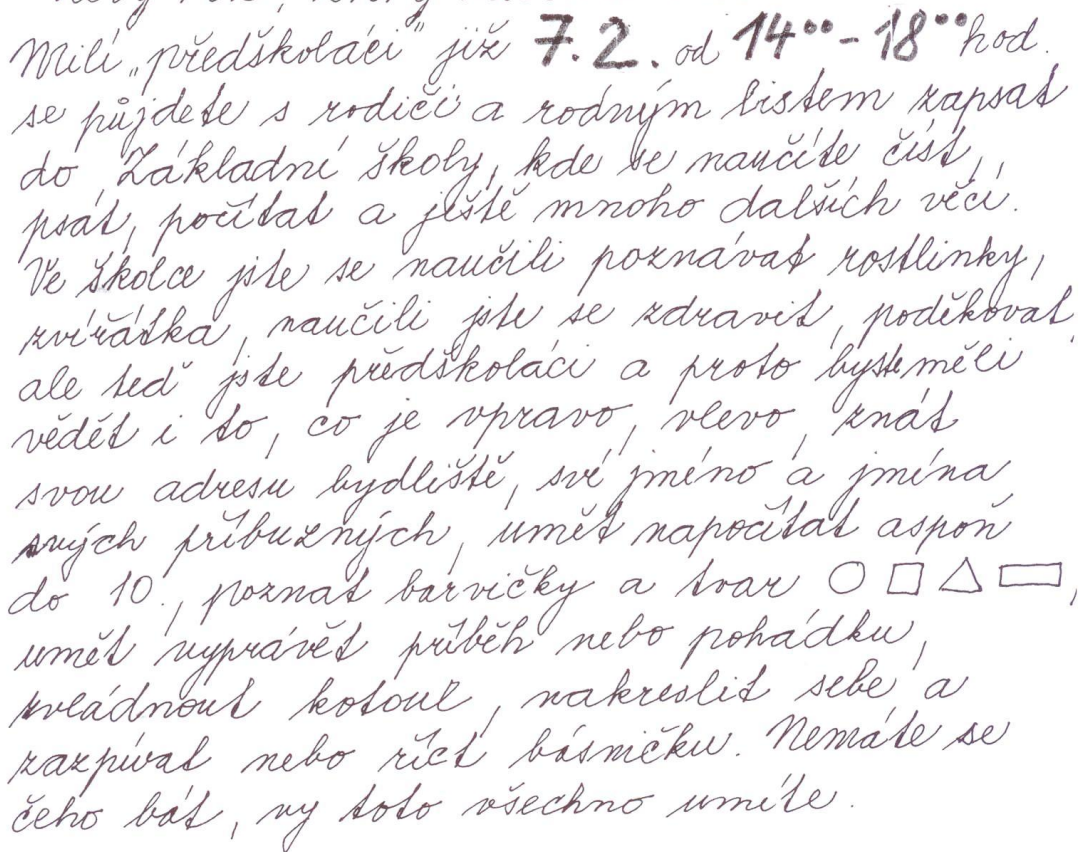 Milí „předškoláci" již 7.2. od 14⁰⁰-18⁰⁰ hod.
se půjdete s rodiči a rodným listem zapsat
do Základní školy, kde se naučíte číst,
psát, počítat a ještě mnoho dalších věcí.
Ve školce jste se naučili poznávat rostlinky,
zvířátka, naučili jste se zdravit, poděkovat,
ale teď jste předškoláci a proto byste měli
vědět i to, co je vpravo, vlevo, znát
svou adresu bydliště, své jméno a jména
svých příbuzných, umět napočítat aspoň
do 10., poznat barvičky a tvar ○ □ △ ▭,
umět vyprávět příběh nebo pohádku,
zvládnout kotoul, nakreslit sebe a
zazpívat nebo říct básničku. Nemáte se
čeho bát, vy toto všechno umíte.